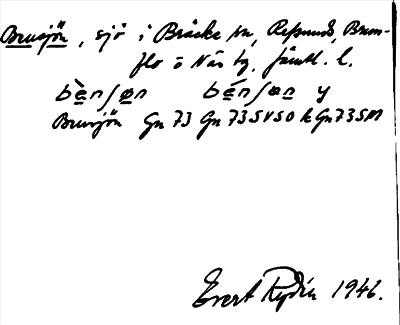 Brusjön, sjö i Bräcke sn, Refsunds, Brun-
flo o Näs tg, Jämtl. l.
bὲnʃøn bέnʃøn y
Brusjön Gn 73 Gn 73 SVSO k Gn 73 SM
Evert Rydén 1946.